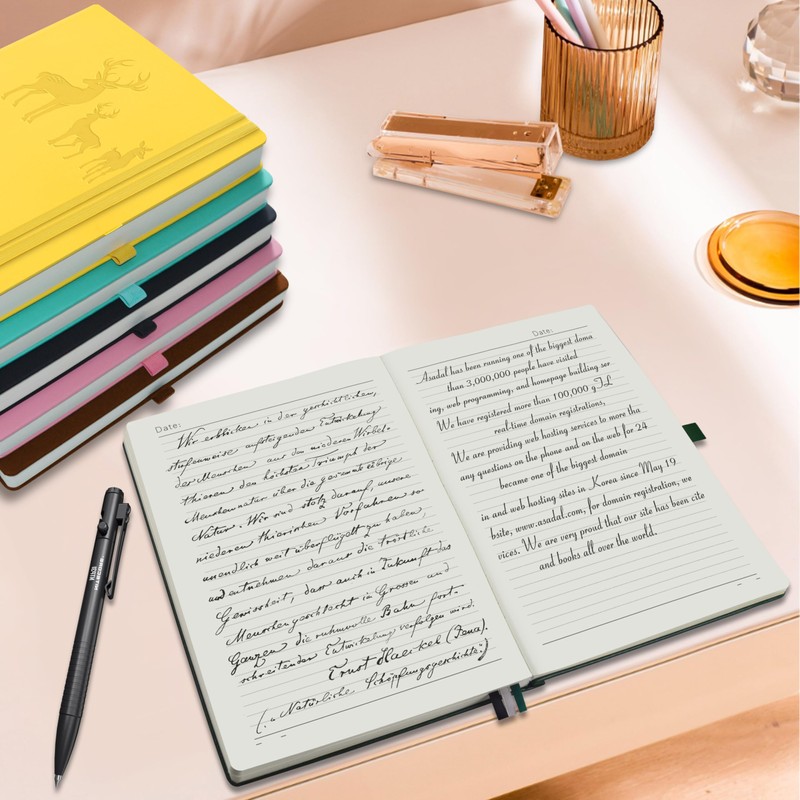 Date:
Wir erblicken in der geschichtlichen,
stufenweise aufsteigenden Entwickelung
der Menschen aus den niederen Wirbel-
thieren den höchsten Triumph der
Menschennatur über die gesammte übrige
Natur. Wir sind stolz darauf, unsere
niederen thierischen Vorfahren so
unendlich weit überflügelt zu haben,
und entnehmen daraus die tröstliche
Gewissheit, dass auch in Zukunft das
Menschengeschlecht im Grossen und
Ganzen die ruhmvolle Bahn fort-
schreitender Entwickelung verfolgen wird.
Ernst Haeckel (Jena).
(Natürliche Schöpfungsgeschichte.)
Date:
Asadal has been running one of the biggest doma
than 3,000,000 people have visited
ing, web programming, and homepage building ser
We have registered more than 100,000 gTL
real-time domain registrations,
We are providing web hosting services to more tha
any questions on the phone and on the web for 24
became one of the biggest domain
in and web hosting sites in Korea since May 19
bsite, www.asadal.com, for domain registration, we
vices. We are very proud that our site has been cite
and books all over the world.